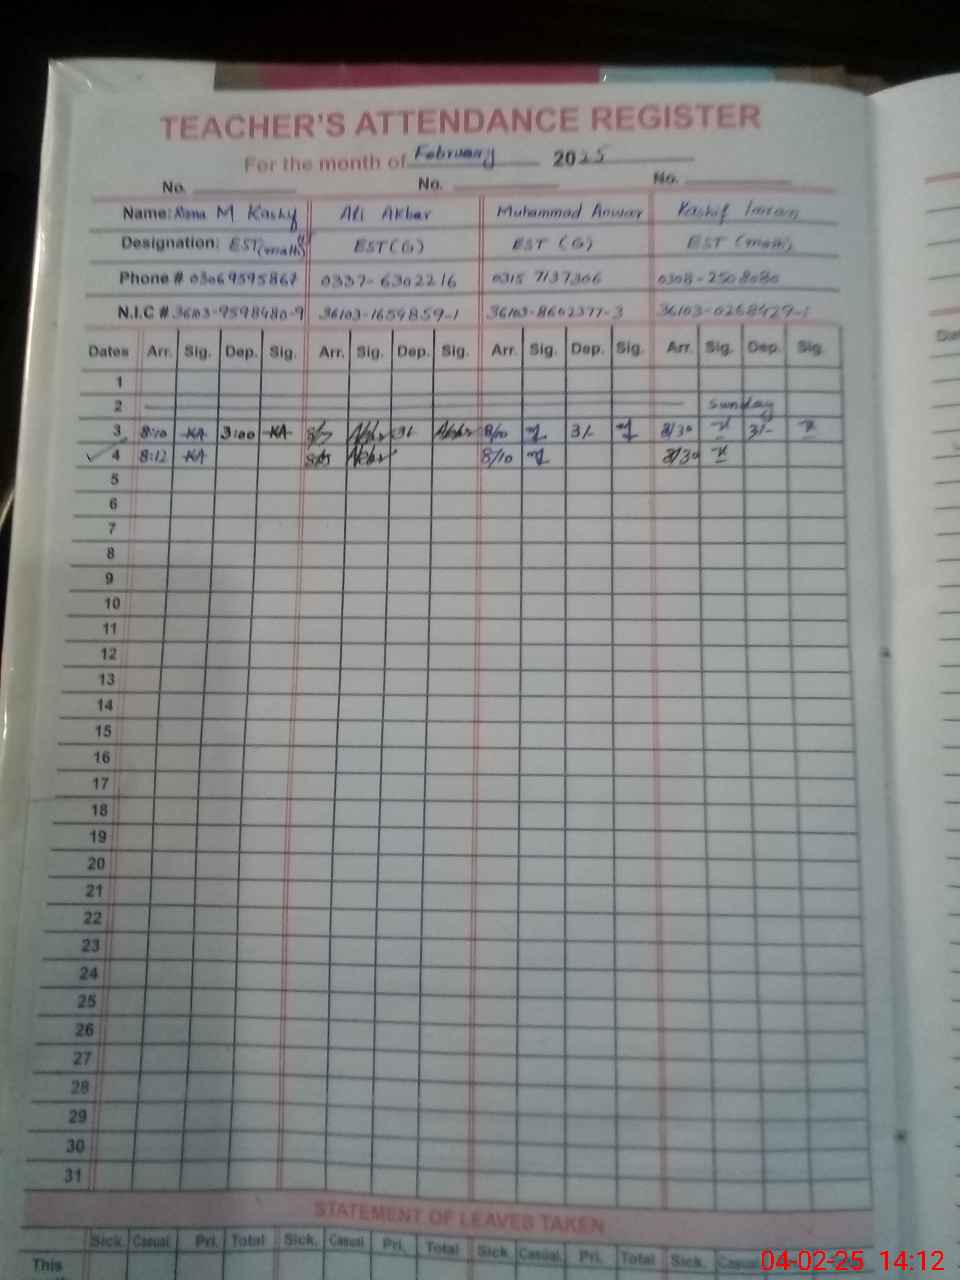 TEACHER'S ATTENDANCE REGISTER
For the month of February 2025
No. No. No.
Name: Rana M Kashif Ali Akbar Muhammad Anwar Kashif Imran
Designation: EST(math) EST(G) EST (G) EST (math)
Phone # 03069595867 0337-6302216 0315 7137306 0308-2508080
N.I.C # 36103-9598480-9 36103-1659859-1 36103-8602377-3 36103-0268429-1
Dates Arr. Sig. Dep. Sig. Arr. Sig. Dep. Sig. Arr. Sig. Dep. Sig. Arr. Sig. Dep. Sig.
1
2 Sunday
3 8:10 KA 3:00 KA Akbar 3/- Akbar 8/10 3/- 8/30 3/-
4 8:12 KA Akbar 8/10 8/30
5
6
7
8
9
10
11
12
13
14
15
16
17
18
19
20
21
22
23
24
25
26
27
28
29
30
31
STATEMENT OF LEAVES TAKEN
Sick. Casual. Pri. Total Sick. Casual. Pri. Total Sick. Casual. Pri. Total Sick.
This
04-02-25 14:12